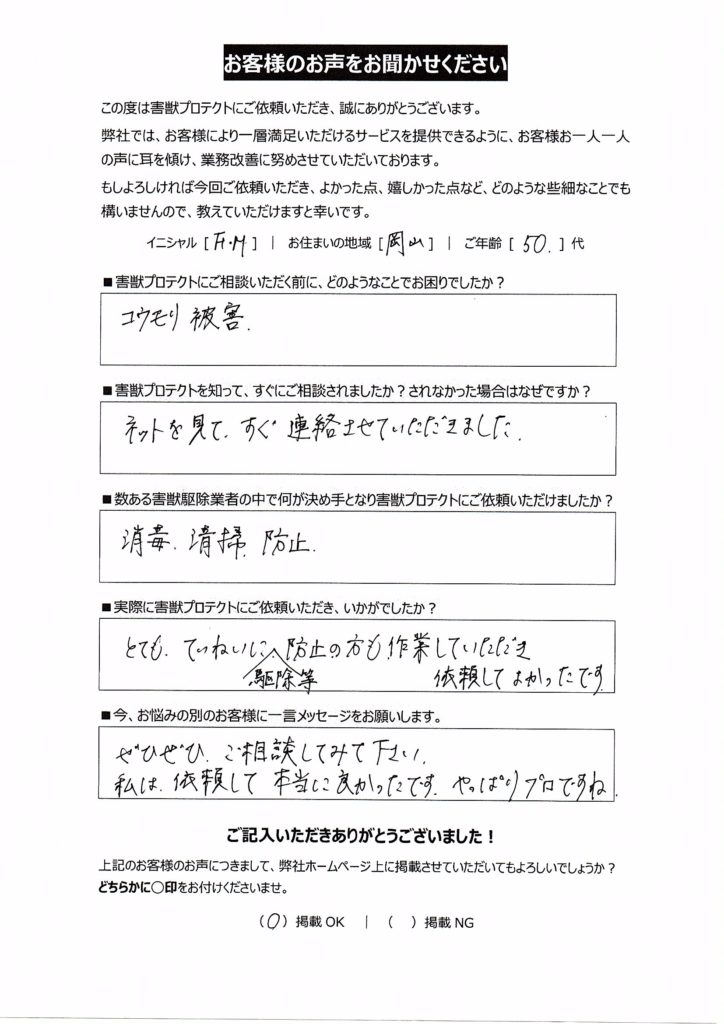 お客様のお声をお聞かせください
この度は害獣プロテクトにご依頼いただき、誠にありがとうございます。
弊社では、お客様により一層満足いただけるサービスを提供できるように、お客様お一人一人
の声に耳を傾け、業務改善に努めさせていただいております。
もしよろしければ今回ご依頼いただき、よかった点、嬉しかった点など、どのような些細なことでも
構いませんので、教えていただけますと幸いです。
イニシャル [ F・M ] | お住まいの地域 [ 岡山 ] | ご年齢 [ 50. ] 代
■害獣プロテクトにご相談いただく前に、どのようなことでお困りでしたか？
コウモリ被害.
■害獣プロテクトを知って、すぐにご相談されましたか？されなかった場合はなぜですか？
ネットを見て、すぐ連絡させていただきました.
■数ある害獣駆除業者の中で何が決め手となり害獣プロテクトにご依頼いただけましたか？
消毒、清掃、防止.
■実際に害獣プロテクトにご依頼いただき、いかがでしたか？
とても、ていねいに、防止の方も作業していただき
駆除等 依頼してよかったです.
■今、お悩みの別のお客様に一言メッセージをお願いします。
ぜひぜひ、ご相談してみて下さい.
私は、依頼して本当に良かったです。やっぱりプロですね.
ご記入いただきありがとうございました！
上記のお客様のお声につきまして、弊社ホームページ上に掲載させていただいてもよろしいでしょうか？
どちらかに〇印をお付けくださいませ。
(〇) 掲載 OK | ( ) 掲載 NG